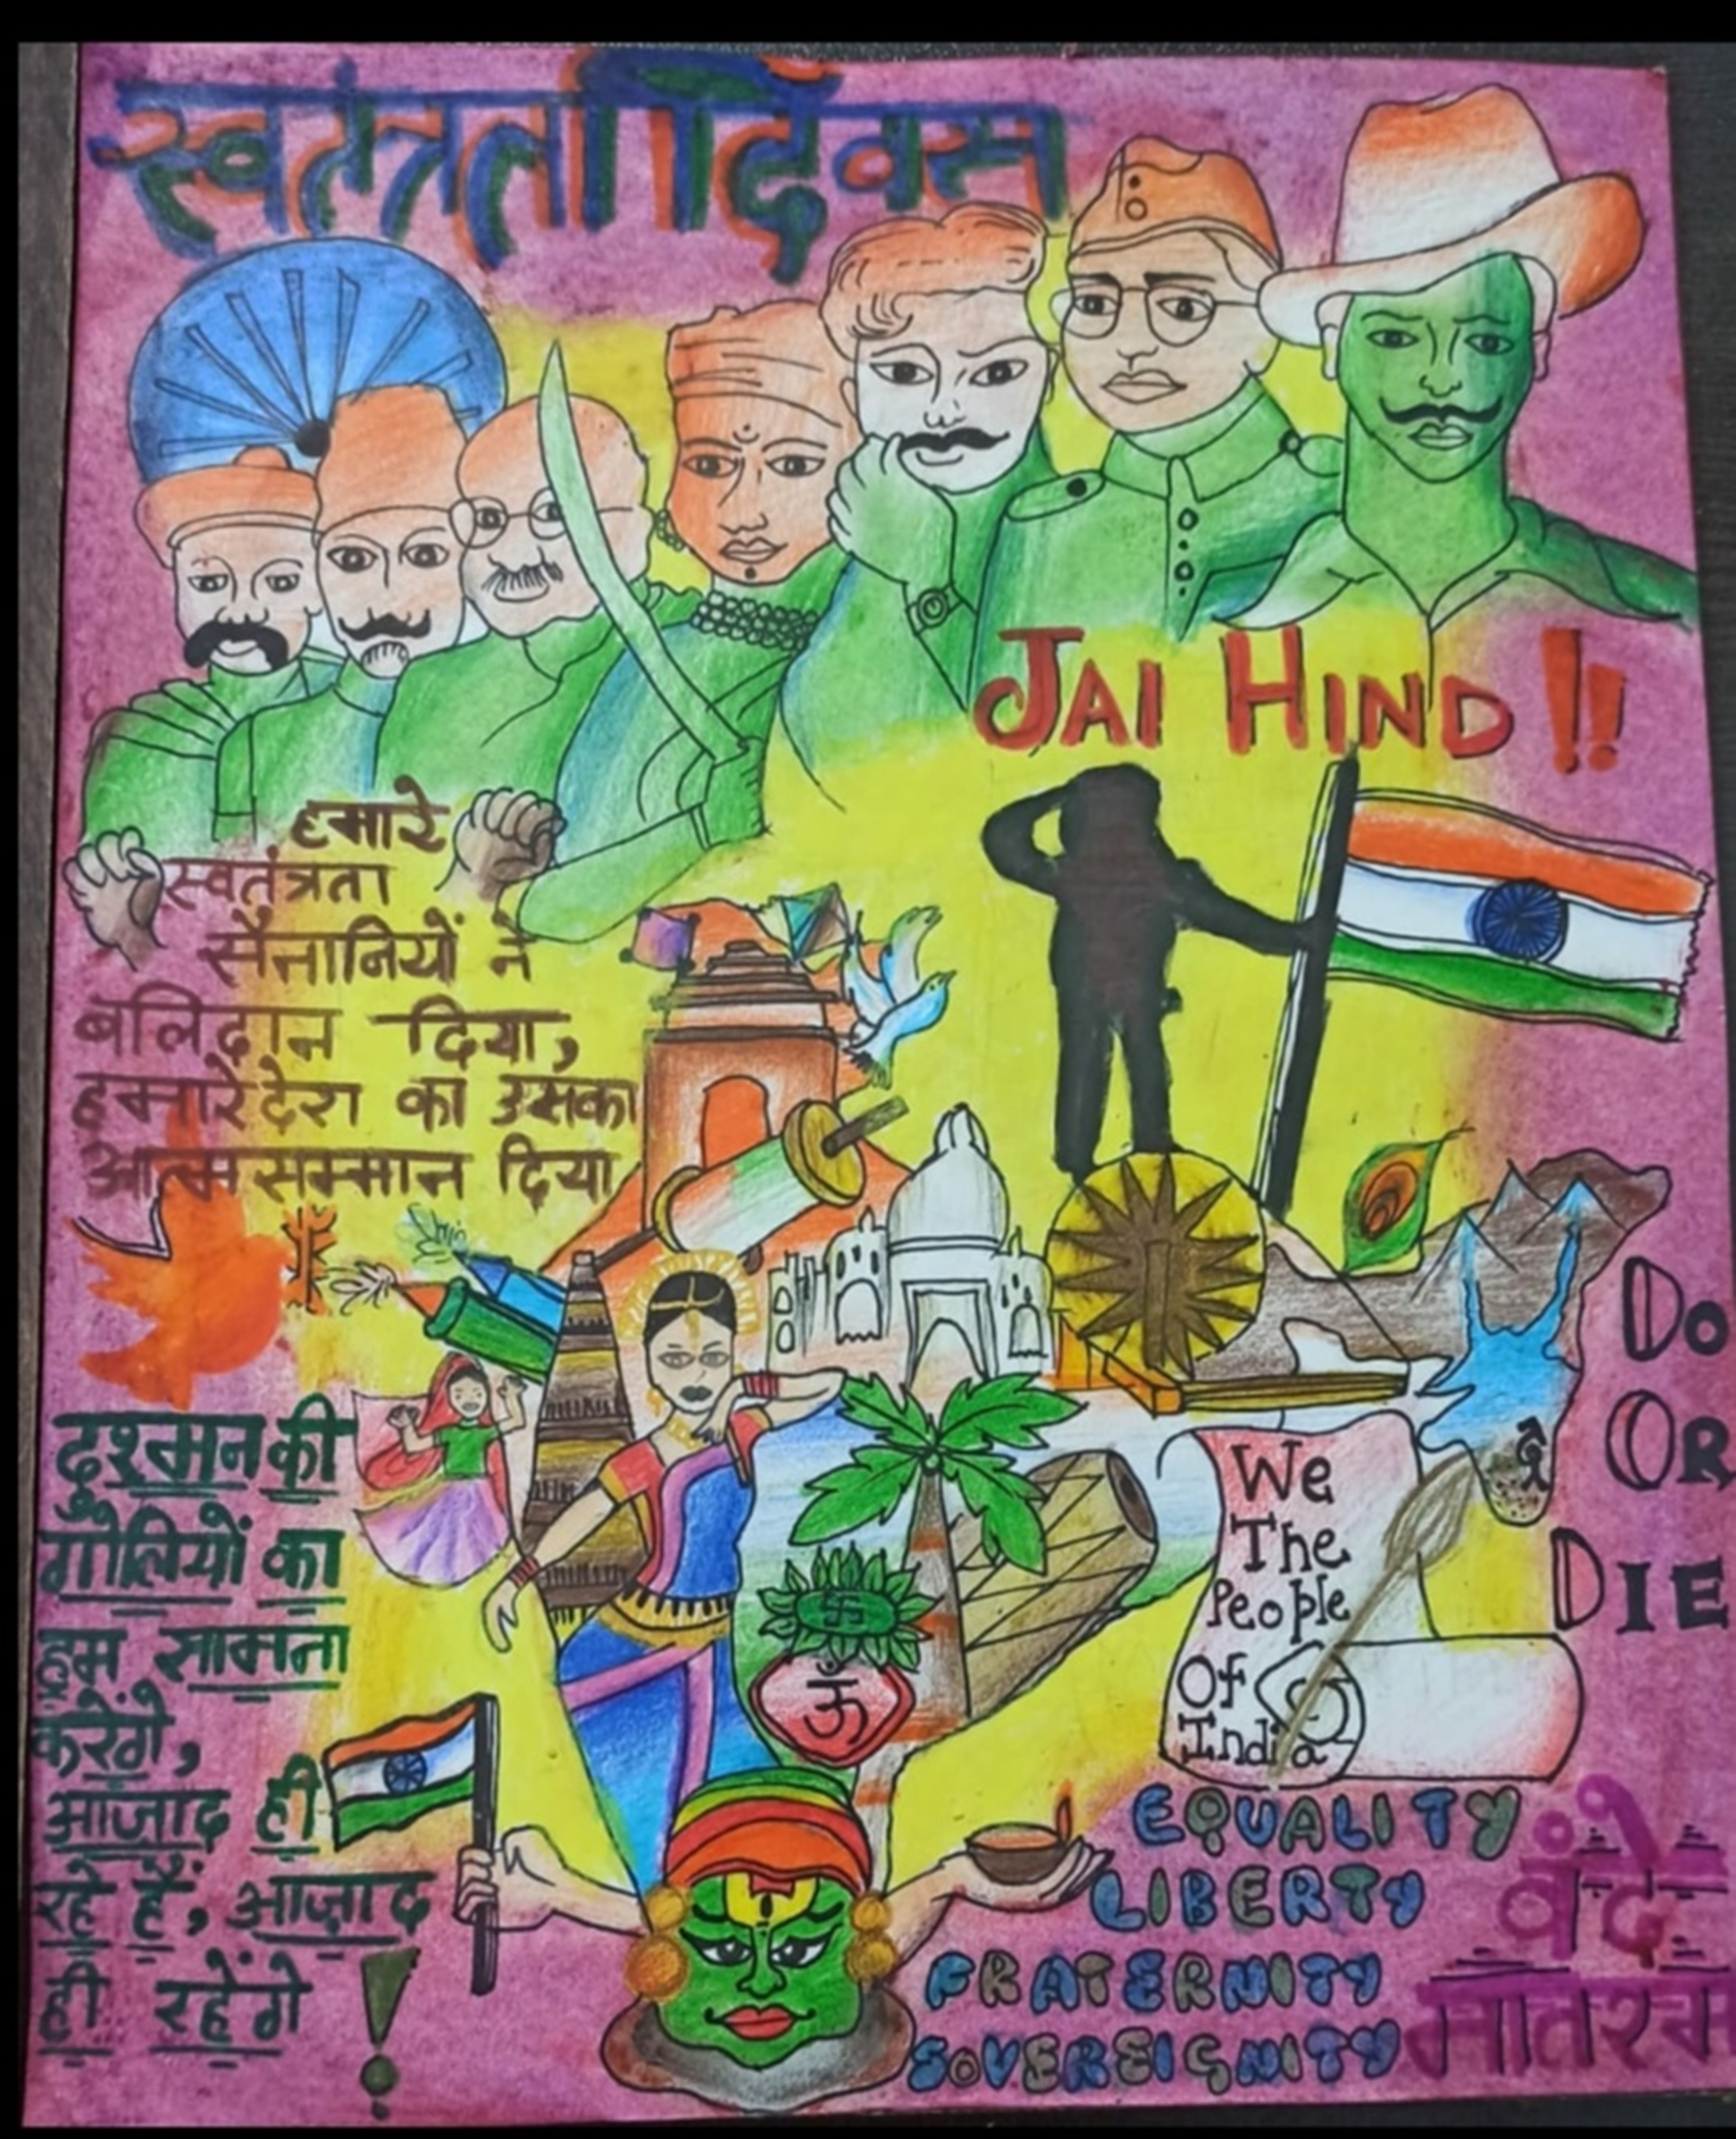 स्वतंत्रता दिवस
JAI HIND !!
हमारे
स्वतंत्रता
सैनानियों ने
बलिदान दिया,
हमारे देश को उसका
आत्मसम्मान दिया
DO
OR
DIE
दुश्मन की
गोलियों का
हम सामना
करेंगे,
आज़ाद ही
रहे हैं, आज़ाद
ही रहेंगे !
We
The
People
Of
India
ॐ
EQUALITY
LIBERTY
FRATERNITY
SOVEREIGNITY
वंदे
मातरम